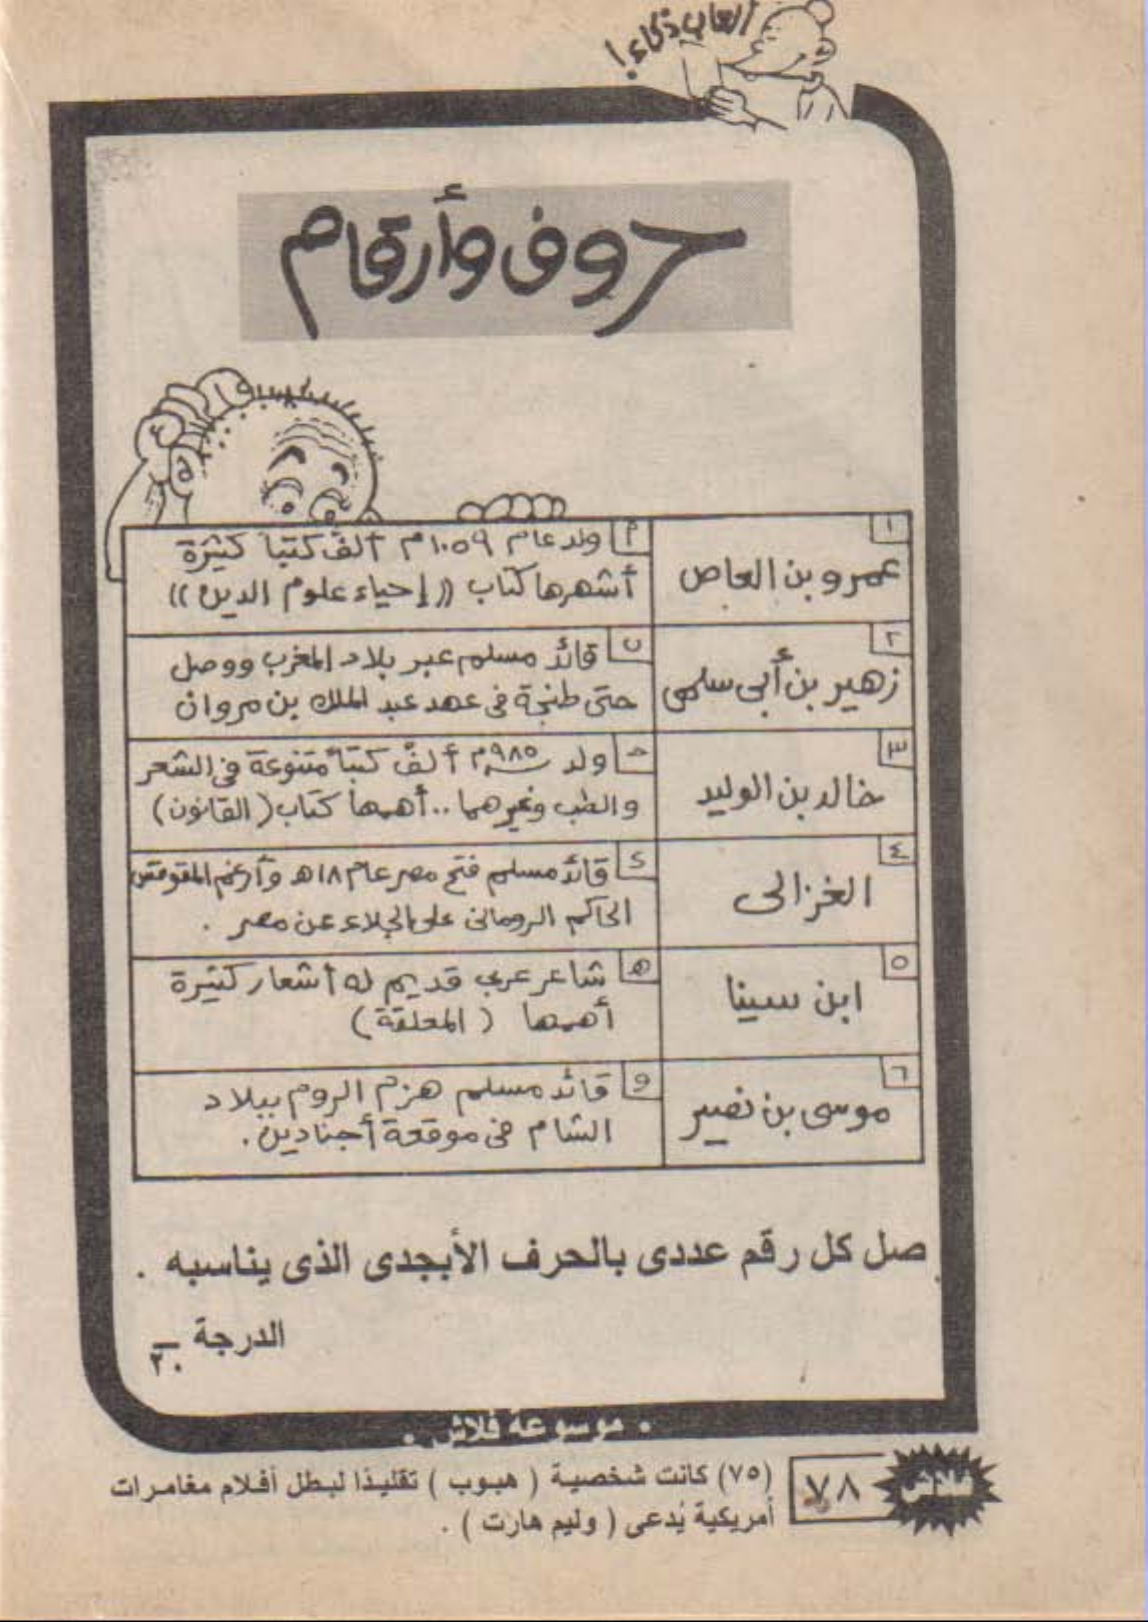 ألعاب ذكاء!
حروف وأرقام
١
عمرو بن العاص
أ ولد عام ١٠٥٩م ألف كتباً كثيرة
أشهرها كتاب ((إحياء علوم الدين))
٢
زهير بن أبي سلمى
ب قائد مسلم عبر بلاد المغرب ووصل
حتى طنجة فى عهد عبد الملك بن مروان
٣
خالد بن الوليد
حـ ولد سنة ٩٨٥م ألف كتباً متنوعة فى الشعر
والطب وغيرهما .. أهمها كتاب (القانون)
٤
الغزالى
د قائد مسلم فتح مصر عام ١٨هـ وأرغم المقوقس
الحاكم الرومانى على الجلاء عن مصر .
٥
ابن سينا
هـ شاعر عربي قديم له أشعار كثيرة
أهمها (المعلقة)
٦
موسى بن نصير
و قائد مسلم هزم الروم ببلاد
الشام فى موقعة أجنادين.
صل كل رقم عددى بالحرف الأبجدى الذى يناسبه .
الدرجة —
٢٠
. موسوعة فلاش .
فلاش
٧٨
(٧٥) كانت شخصية ( هبوب ) تقليدًا لبطل أفلام مغامرات
أمريكية يُدعى ( وليم هارت ) .